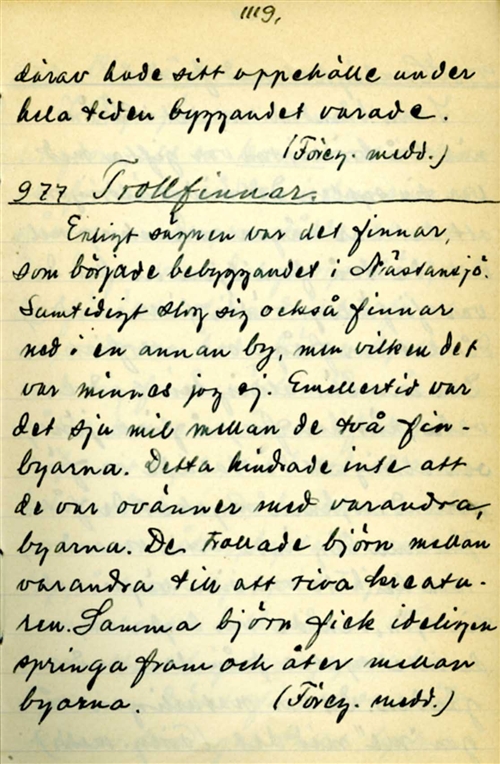 1119.
därav hade sitt uppehälle under
hela tiden byggandet varade.
(Föreg. medd.)
977 Trollfinnar.
Enligt sägnen var det finnar,
som började bebyggandet i Nästansjö.
Samtidigt slog sig också finnar
ned i en annan by, men vilken det
var minnes jag ej. Emellertid var
det sju mil mellan de två fin-
byarna. Detta hindrade inte att
de var ovänner med varandra,
byarna. De trollade björn mellan
varandra till att riva kreatu-
ren. Samma björn fick idelingen
springa fram och åter mellan
byarna. (Föreg. medd.)